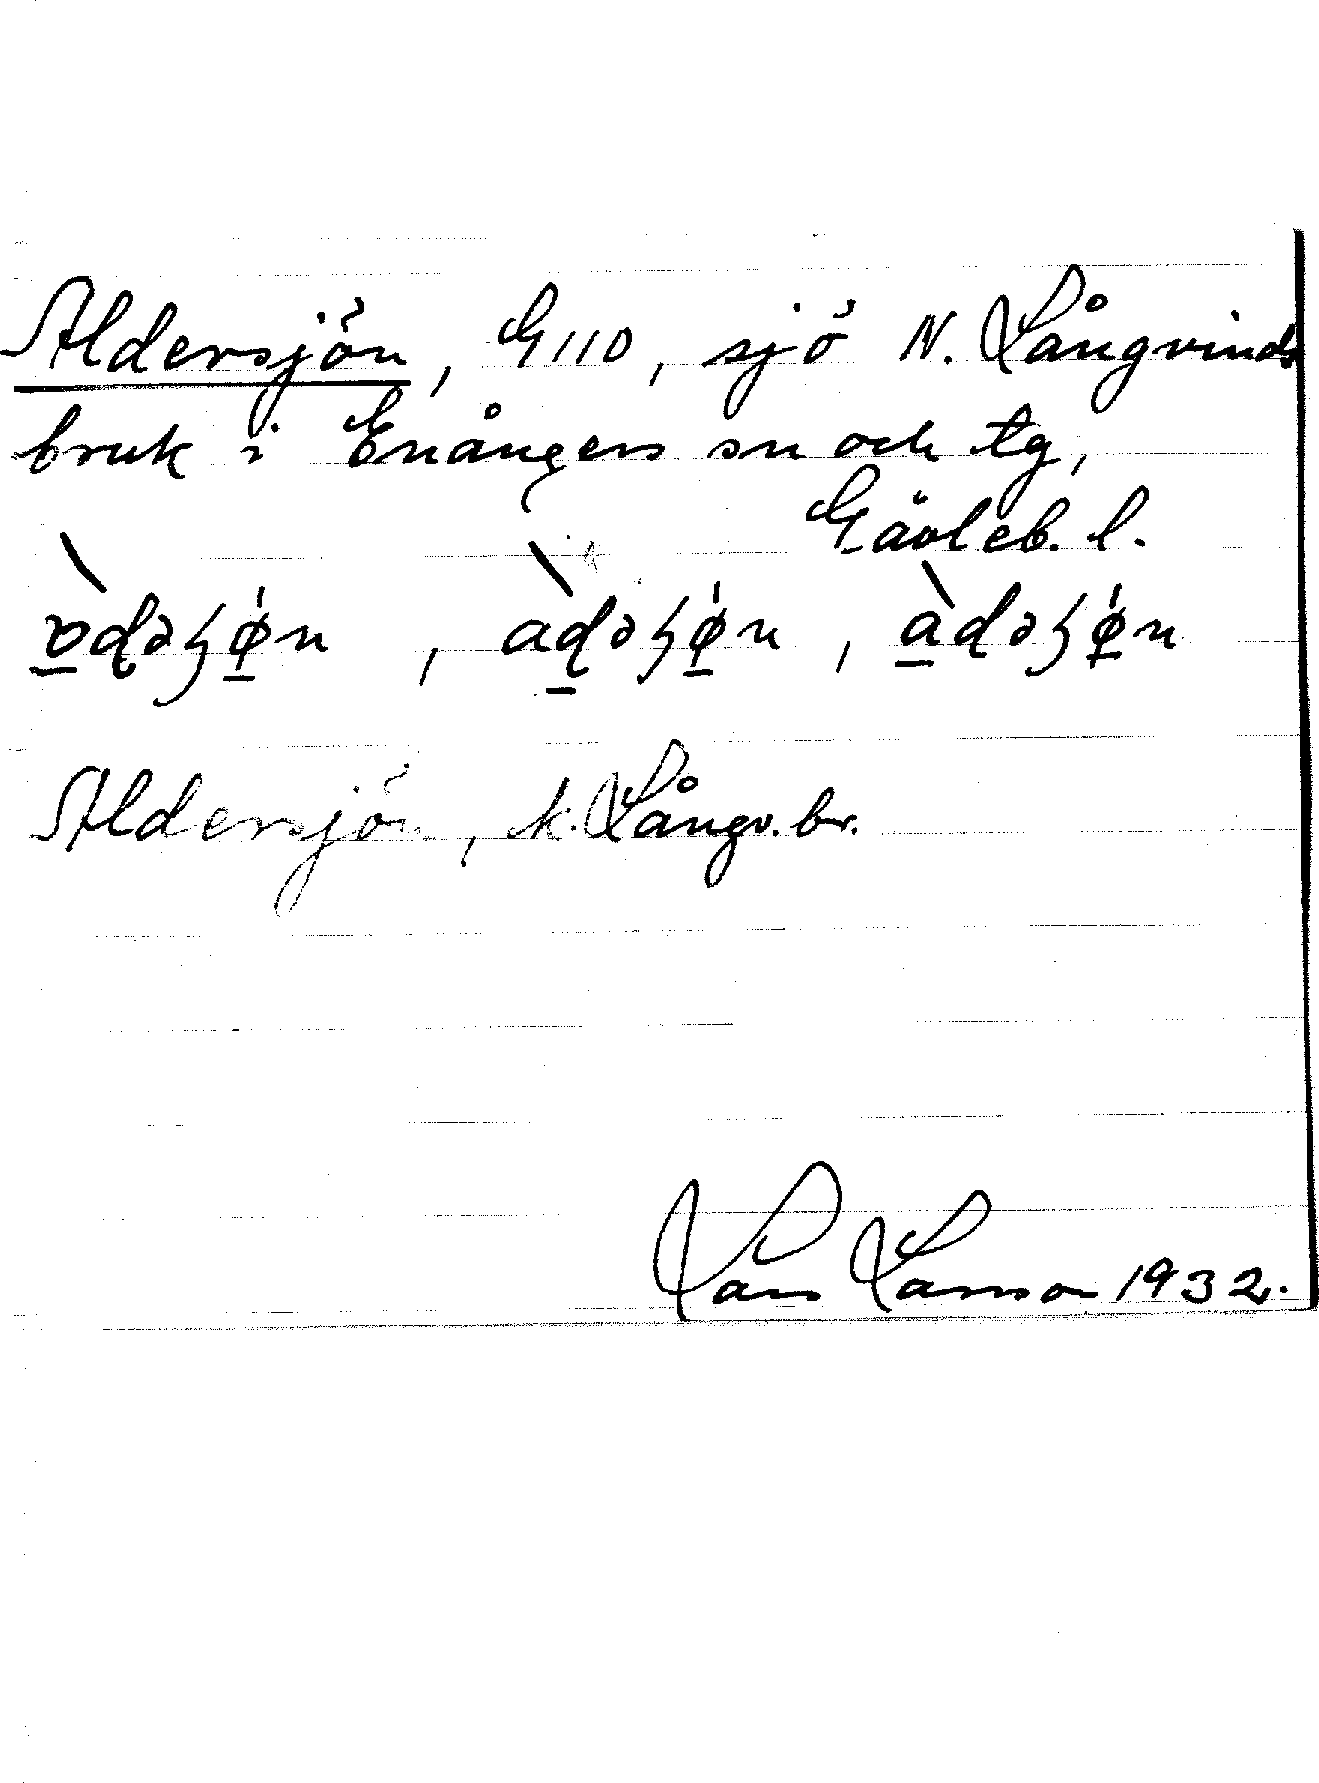 Aldersjön, G110, sjö N. Långvinds
bruk i Enångers sn och tg,
Gävleb. l.
ɒ̀ḍəʒø̍n, àḍəʒø̍n, àdəʒø̍n
Aldersjön, k. Långv. br.
Lars Larsson 1932.